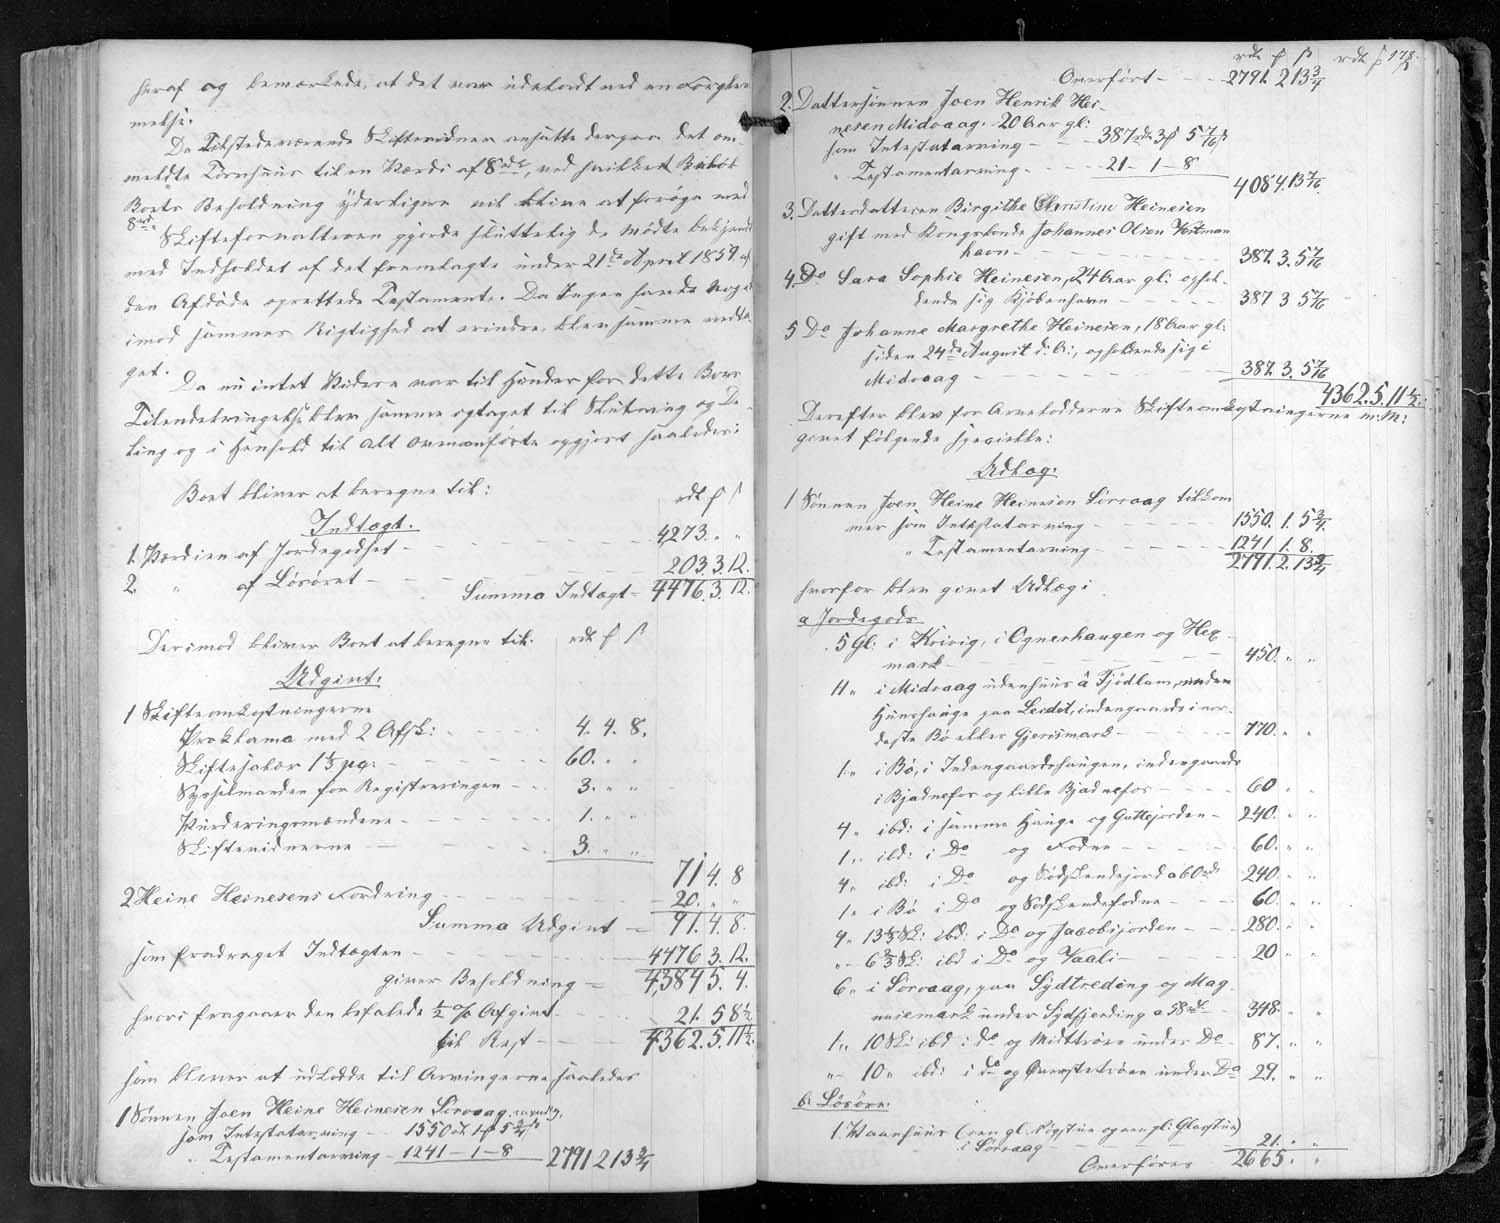 heraf og bemærkede, at det var udeladt ved en Forglem-
melse.
De Tilstedeværende Skiftevidner ansatte derpaa det om-
meldte Tørnhuus til en Værdi af 8rd, ved hvilket Beløb
Boets Beholdning yderligere vil blive at forøge med
8rd.
Skifteforvalteren gjorde sluttelig de Mødte bekjendt
med Indholdet af det fremlagte under 21de April 1859 af
den Afdøde oprettede Testamente. Da Ingen havde Noget
imod sammes Rigtighed at erindre, blev samme vedta-
get.
Da nu intet Videre var til Hinder for dette Boes
Tilendebringelse blev samme optaget til Slutning og De-
ling og i Henhold til Alt Ovenanførte opgjort saaledes:
Boet bliver at beregne til: rdl ß
Indtægt.
1. Værdien af Jordegodset - - - 4273. " "
2. " af Løsøret - - - 203. 3. 12.
Summa Indtægt = 4476. 3. 12.
Derimod bliver Boet at beregne til: rdl ß
Udgivt:
1 Skifteomkostningerne
Proklama med 2 Afsk: - - - 4. 4. 8.
Skiftesalær 1 1/3 pC: - - - 60. " "
Sysselmanden for Registreringen - - 3. " "
Vurderingsmændene - - - 1. " "
Skiftevidnerne - - - 3. " "
71 4. 8
2 Heine Heinesens Fordring - - - 20. " "
Summa Udgivt = 91. 4. 8.
som fradraget Indtægten - - - 4476 3. 12.
giver Beholdning = 4384 5. 4.
hvori fragaaer den befalede 1/2 % Afgivt - - - 21. 5 8 1/2
til Rest - - - 4362. 5. 11 1/2
som bliver at udlodde til Arvingerne saaledes
1 Sønnen Joen Heine Heinesen Sørvaag, myndig,
som Intestatarving - - 1550 rd 1 5 3/4 ß
" Testamentarving - 1241 - 1 - 8 2791 2 13 3/4
rdl ß rdl ß 178.
Overført - - - 2791. 2 13 3/4
2. Dattersønnen Joen Henrik Hei-
nesen Midvaag. 20 Aar gl:
som Intestatarving - - - 387 rd 3 5 7/16 ß
" Testamentarving - - - 21 - 1 - 8
408 4. 13 7/16
3. Datterdatteren Birgithe Christine Heinesen
gift med Kongsbonde Johannes Olsen Vestman-
havn - - - 387. 3. 5 7/16
4. Do Sara Sophie Heinesen, 24 Aar gl: ophol-
dende sig Kjøbenhavn - - - 387 3 5 7/16
5 Do Johanne Margrethe Heinesen, 18 Aar gl:
siden 24de August d: A:, opholdende sig i
Midvaag - - - 387. 3. 5 7/16
4362. 5. 11 1/2.
Derefter blev for Arvelodderne Skifteomkostningerne m: M:
givet følgende specielle:
Udlæg:
1 Sønnen Joen Heine Heinesen Sørvaag tilkom-
mer som Intestatarving - - - 1550. 1. 5 3/4.
" Testamentarving - - - 1241 1. 8.
2791. 2. 13 3/4
hvorfor blev givet Udlæg i
a Jordegods.
5 Gl: i Kvivig, i Ognerhaugen og Heg-
mark - - - 450. " "
11 " i Midvaag udenhuus å Tjødlum, under
Hunshauge paa Leidet, indengaards i nor-
deste Bø eller Gjerismark - - - 770. " "
1. " i Bø, i Indengaardshaugen, indengaards
i Bjadnefos og lille Bjadnefos - - - 60 " "
4 " ibd: i samme Hauge og Guttejorden - 240. " "
1 " ibd: i Do og Fodne - - - 60. " "
4 " ibd: i Do og Sødskendejord a 60 rd 240. " "
1 " i Bø i Do og Sødskendefodne - - 60. " "
4 " 13 1/3 Sk: ibd: i Do og Jacobsjorden - - 280. " "
" - 6 2/3 Sk: ibd i Do og Vaali - - - 20 " "
6 " i Sørvaag, paa Sydtreding og Mag-
nusmark under Sydfjerding a 58 rd - 348. " "
1 " 10 Sk: ibd: i do og Midttröer under Do - 87. " "
" - 10 " ibd: i do og Øverstetröer under Do 29. " "
b: Løsøre:
1. Vaanhuus (een gl: Røgstue og een gl: Glasstue)
i Sørvaag - - - 21. " "
Overføres 2665. " "